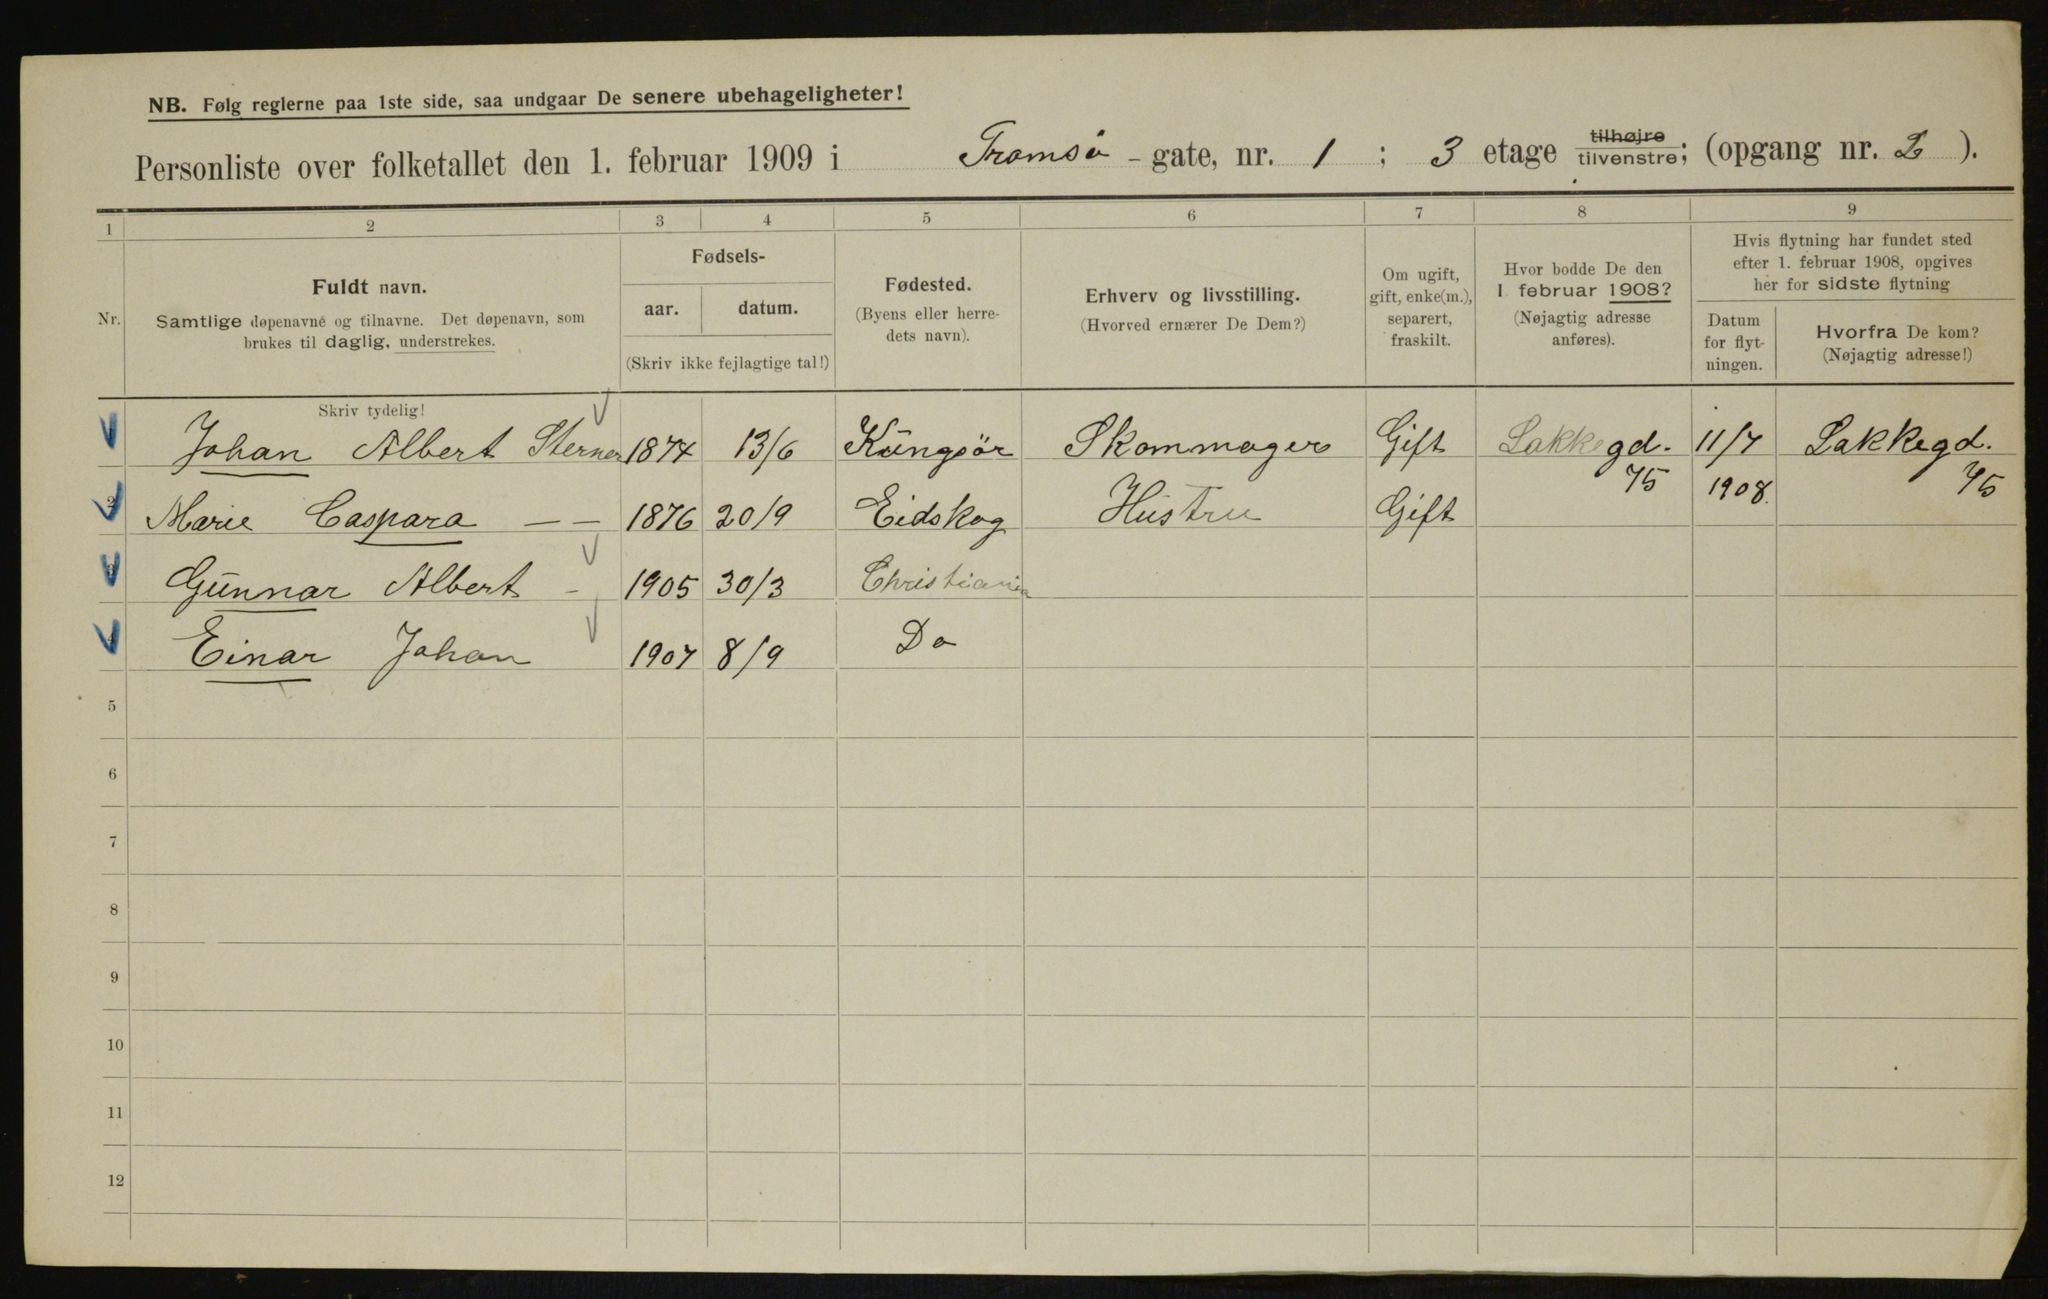 NB. Følg reglerne paa 1ste side, saa undgaar De senere ubehageligheter!
Personliste over folketallet den 1. februar 1909 i Tromsø - gate, nr. 1 ; 3 etage tilhøjre tilvenstre; (opgang nr. 2 ).
1 2 3 4 5 6 7 8 9
Nr.
Fuldt navn.
Samtlige døpenavne og tilnavne. Det døpenavn, som
brukes til daglig, understrekes.
Fødsels-
aar. datum.
(Skriv ikke fejlagtige tal!)
Fødested.
(Byens eller herre-
dets navn).
Erhverv og livsstilling.
(Hvorved ernærer De Dem?)
Om ugift,
gift, enke(m.),
separert,
fraskilt.
Hvor bodde De den
1. februar 1908?
(Nøjagtig adresse
anføres).
Hvis flytning har fundet sted
efter 1. februar 1908, opgives
her for sidste flytning
Datum
for flyt-
ningen.
Hvorfra De kom?
(Nøjagtig adresse!)
Skriv tydelig!
1 Johan Albert Sterner 1874 13/6 Kungsör Skommager Gift Lakkegd. 75 11/7 1908. Lakkegd. 75
2 Marie Caspara — — 1876 20/9 Eidskog Hustru Gift
3 Gunnar Albert - 1905 30/3 Christiania
4 Einar Johan 1907 8/9 Do
5
6
7
8
9
10
11
12